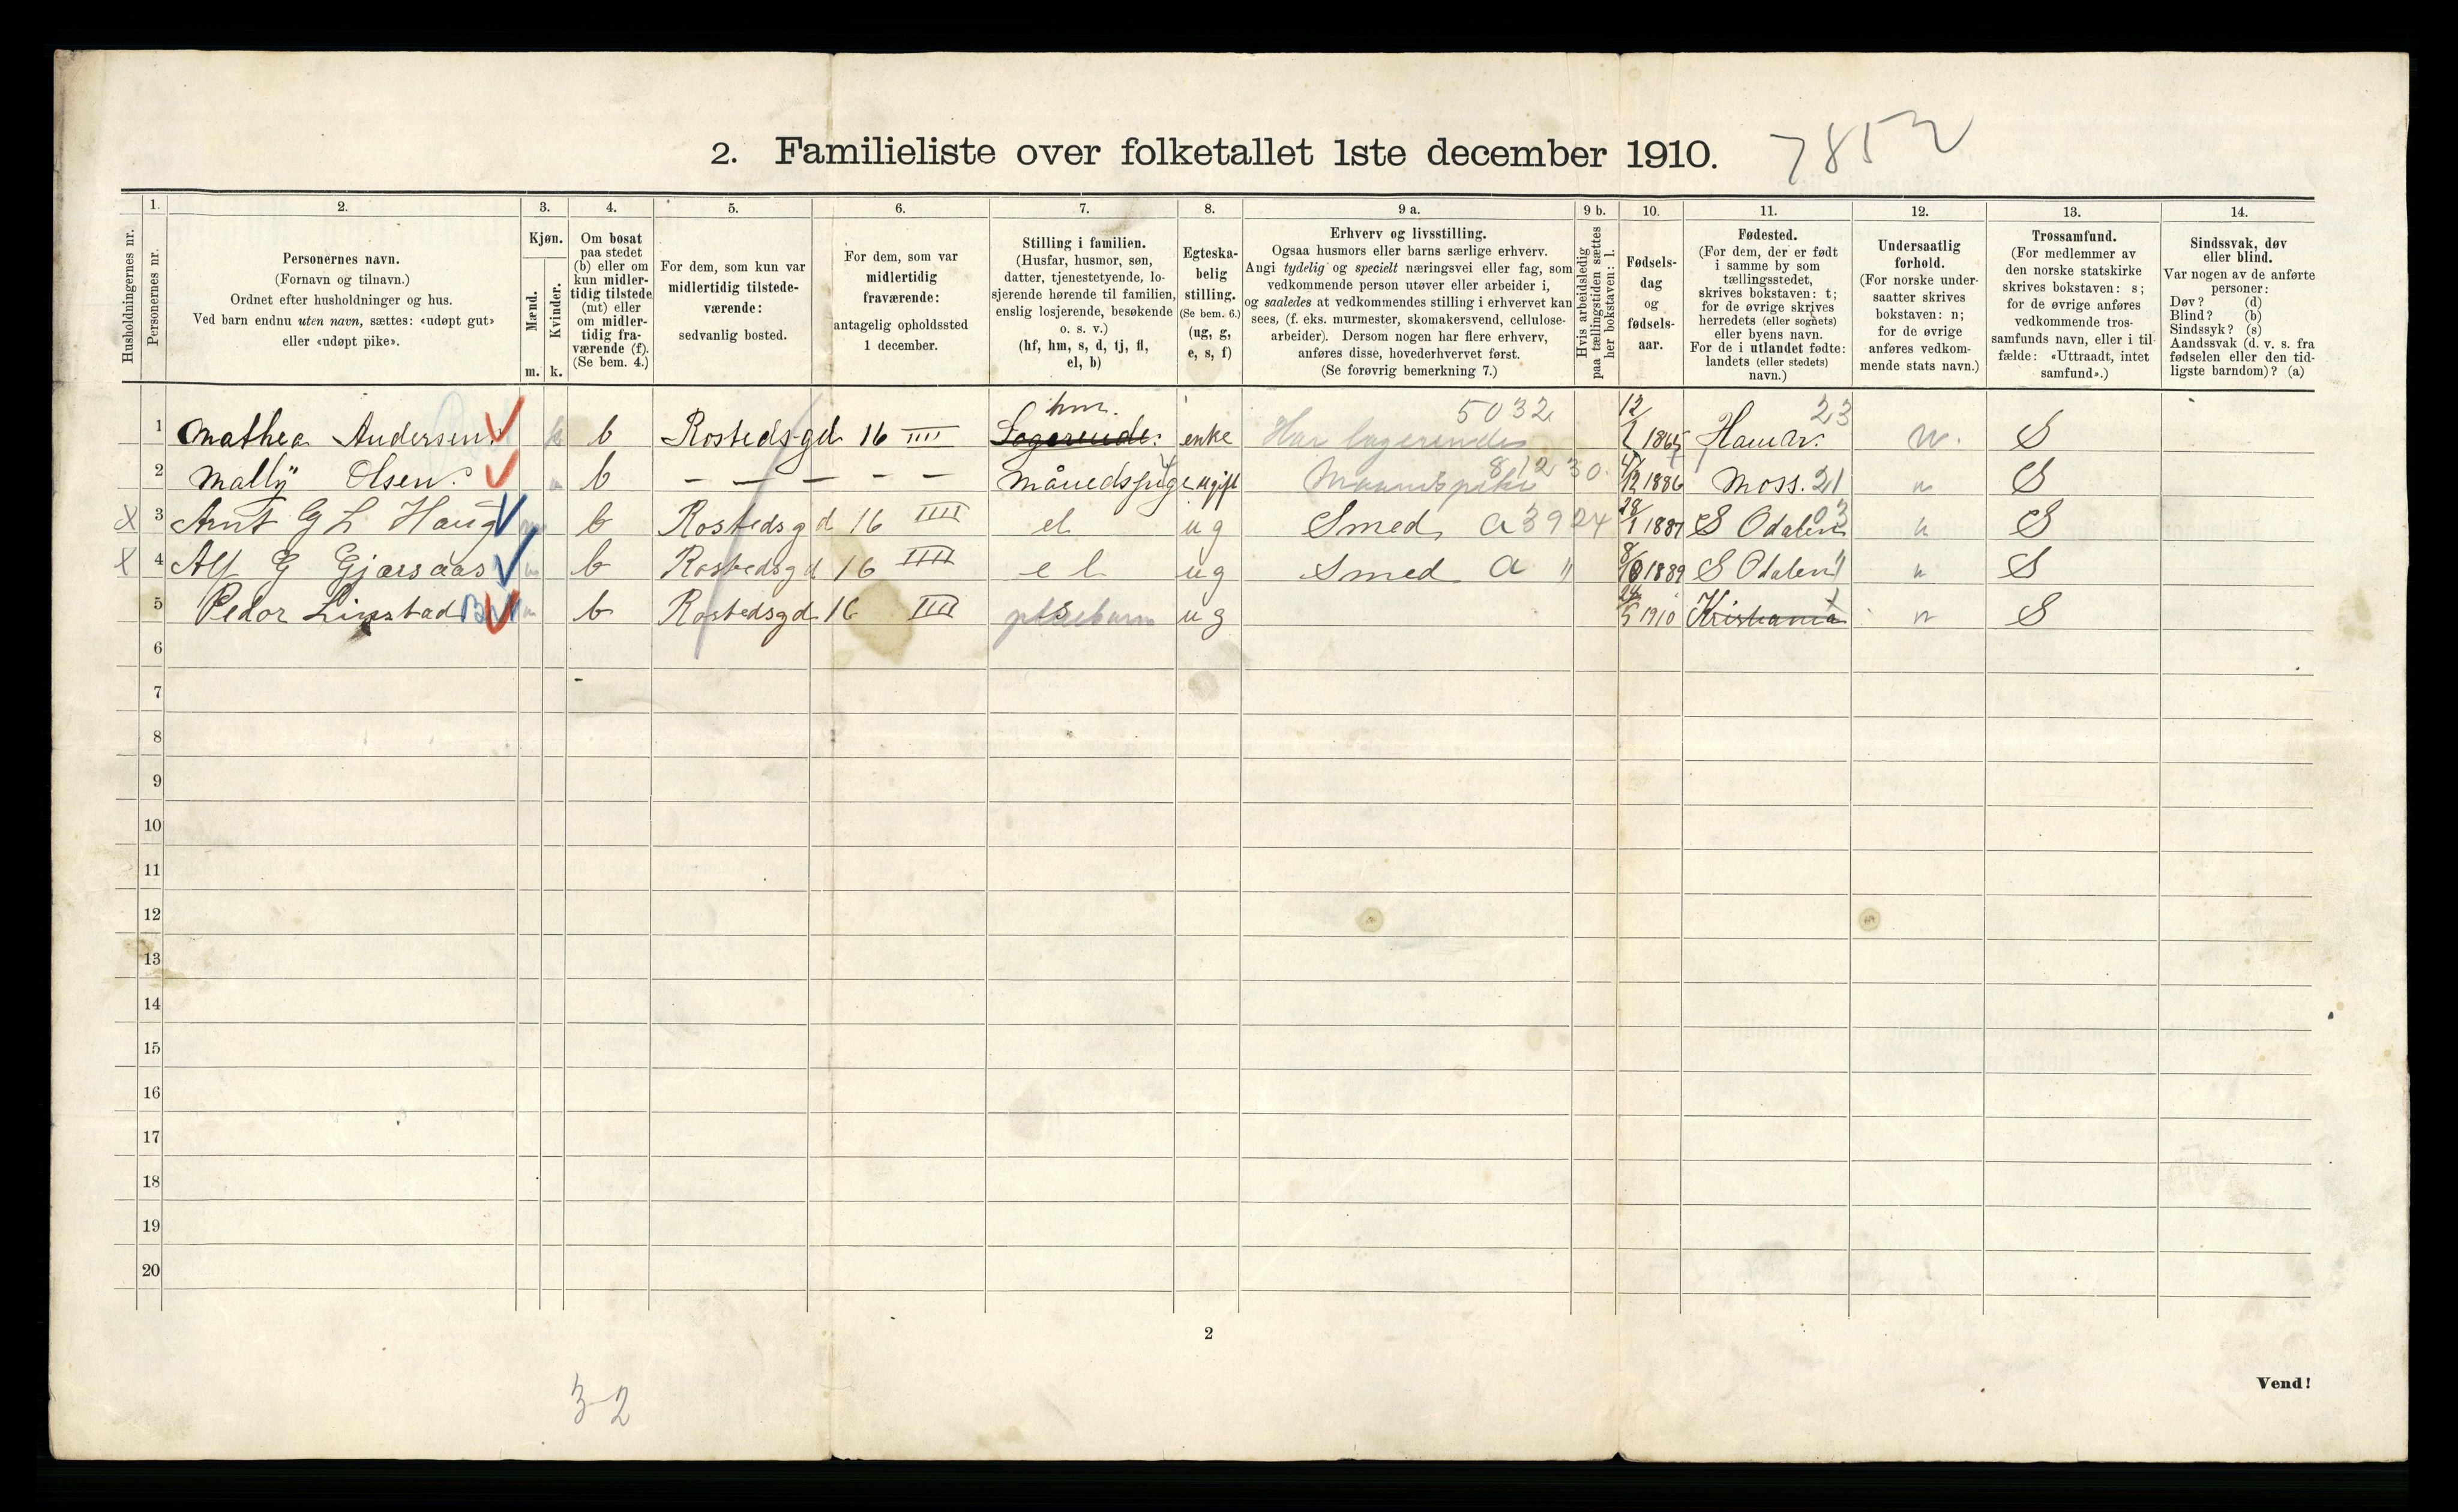 2. Familieliste over folketallet 1ste december 1910. 7852
Husholdningernes nr.
1. Personernes nr.
2. Personernes navn. (Fornavn og tilnavn.) Ordnet efter husholdninger og hus. Ved barn endnu uten navn, sættes: «udøpt gut» eller «udøpt pike».
3. Kjøn. Mænd. m. Kvinder. k.
4. Om bosat paa stedet (b) eller om kun midlertidig tilstede (mt) eller om midlertidig fraværende (f). (Se bem. 4.)
5. For dem, som kun var midlertidig tilstedeværende: sedvanlig bosted.
6. For dem, som var midlertidig fraværende: antagelig opholdssted 1 december.
7. Stilling i familien. (Husfar, husmor, søn, datter, tjenestetyende, losjerende hørende til familien, enslig losjerende, besøkende o. s. v.) (hf, hm, s, d, tj, fl, el, b)
8. Egteskabelig stilling. (Se bem. 6.) (ug, g, e, s, f)
9 a. Erhverv og livsstilling. Ogsaa husmors eller barns særlige erhverv. Angi tydelig og specielt næringsvei eller fag, som vedkommende person utøver eller arbeider i, og saaledes at vedkommendes stilling i erhvervet kan sees, (f. eks. murmester, skomakersvend, cellulosearbeider). Dersom nogen har flere erhverv, anføres disse, hovederhvervet først. (Se forøvrig bemerkning 7.)
9 b. Hvis arbeidsledig paa tællingstiden sættes her bokstaven: l.
10. Fødselsdag og fødselsaar.
11. Fødested. (For dem, der er født i samme by som tællingsstedet, skrives bokstaven: t; for de øvrige skrives herredets (eller sognets) eller byens navn. For de i utlandet fødte: landets (eller stedets) navn.)
12. Undersaatlig forhold. (For norske undersaatter skrives bokstaven: n; for de øvrige anføres vedkommende stats navn.)
13. Trossamfund. (For medlemmer av den norske statskirke skrives bokstaven: s; for de øvrige anføres vedkommende trossamfunds navn, eller i tilfælde: «Uttraadt, intet samfund».)
14. Sindssvak, døv eller blind. Var nogen av de anførte personer: Døv? (d) Blind? (b) Sindssyk? (s) Aandssvak (d. v. s. fra fødselen eller den tidligste barndom)? (a)
1 Mathea Andersen. k b Rostedsgd 16 IIII hm. Logerende. enke Har logerende 5032 1865 Hamar. 23 n. S
2 Mally Olsen. b – – – – – ugift Maanedspike 81230 4/12 1886 Moss. 21 n S
x 3 Arnt G L Haug b Rostedsgd 16 IIII el ug Smed a 3924 28/1 1887 S Odalen 03 n S
x 4 Alf G Gjærsaas b Rostedsgd 16 IIII el ug Smed a " 1889 S Odalen " n S
5 Pedor Linstad b Rostedsgd 16 IIII pleiebarn ug 24/5 1910 Kristiania t n S
6
7
8
9
10
11
12
13
14
15
16
17
18
19
20
2
Vend!
32